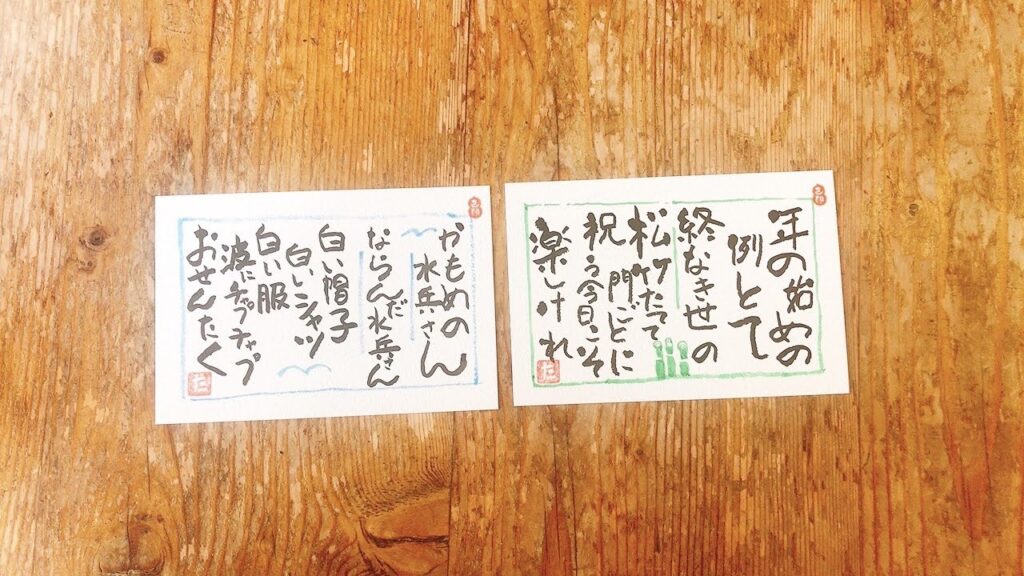 年の始めの
例とて
終なき世の
松竹たてて
門ごとに
祝う今日こそ
楽しけれ
かもめの
水兵さん
ならんだ水兵さん
白い帽子
白いシャツ
白い服
波にチャップチャップ
おせんたく